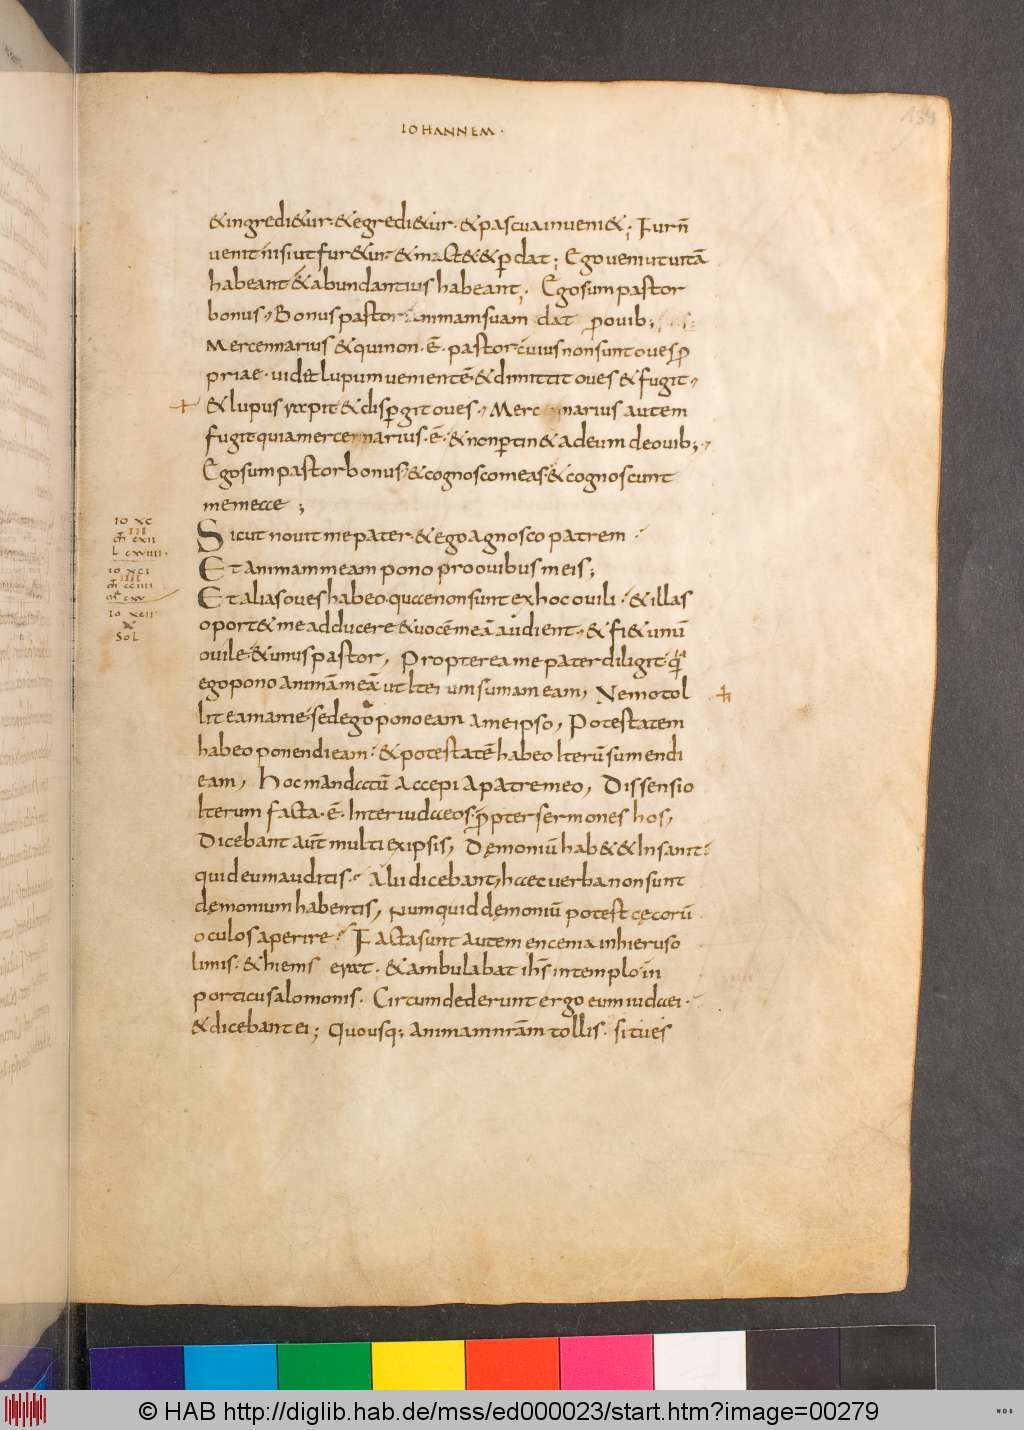 IOHANNEM ·
134
& ingredi&ur · & egredi&ur · & pascua inueni& ; Fur n̄
uenit nisi ut fur&ur & mact& & ꝑdat ; Ego ueni ut uitā
habeant & abundantius habeant ; Ego sum pastor
bonus , Bonus pastor animam suam dat ꝓ ouib ;
Mercennarius & qui non · ē · pastor cuius non sunt oues ꝓ
priae · uid& lupum uenientē · & dimittit oues & fugit ,
& lupus rapit & disꝑgit oues , Mercennarius autem
fugit quia mercennarius · ē · & non ꝑtin& ad eum de ouib ; ,
Ego sum pastor bonus · & cognosco meas · & cognoscunt
me meae ;
Sicut nouit me pater · & ego agnosco patrem ·
Et animam meam pono pro ouibus meis ;
Et alias oues habeo · quae non sunt ex hoc ouili · & illas
oport& me adducere & uocē meā audient , & fi& unū
ouile · & unus pastor , Propterea me pater diligit · q̄a
ego pono animā meā ut Iterum sumam eam , Nemo tol
lit eam a me · sed ego pono eam a me ipso , Potestatem
habeo ponendi eam · & potestatē habeo Iterū sumendi
eam , Hoc mandatū accepi a patre meo , Dissensio
Iterum facta · ē · Inter iudaeos · ꝓpter sermones hos ,
Dicebant aut̄ multi ex ipsis , Dęmoniū hab& & Insanit ·
quid eum auditis · Alii dicebant , haec uerba non sunt
dęmonium habentis , Numquid dęmoniū potest cęcorū
oculos aperire · Facta sunt autem encenia in hieruso
limis · & hiems erat · & ambulabat ih̄s in templo in
porticu salomonis · Circumdederunt ergo eum iudaei ·
& dicebant ei ; Quousq ; animam nr̄am tollis · si tu es
IO XC
III
m̄ CXII
L CXVIIII ·
IO XCI
IIII
m̄ CCIIII
m̄r CXV
IO XCII
X
SOL
© HAB http://diglib.hab.de/mss/ed000023/start.htm?image=00279
WDB